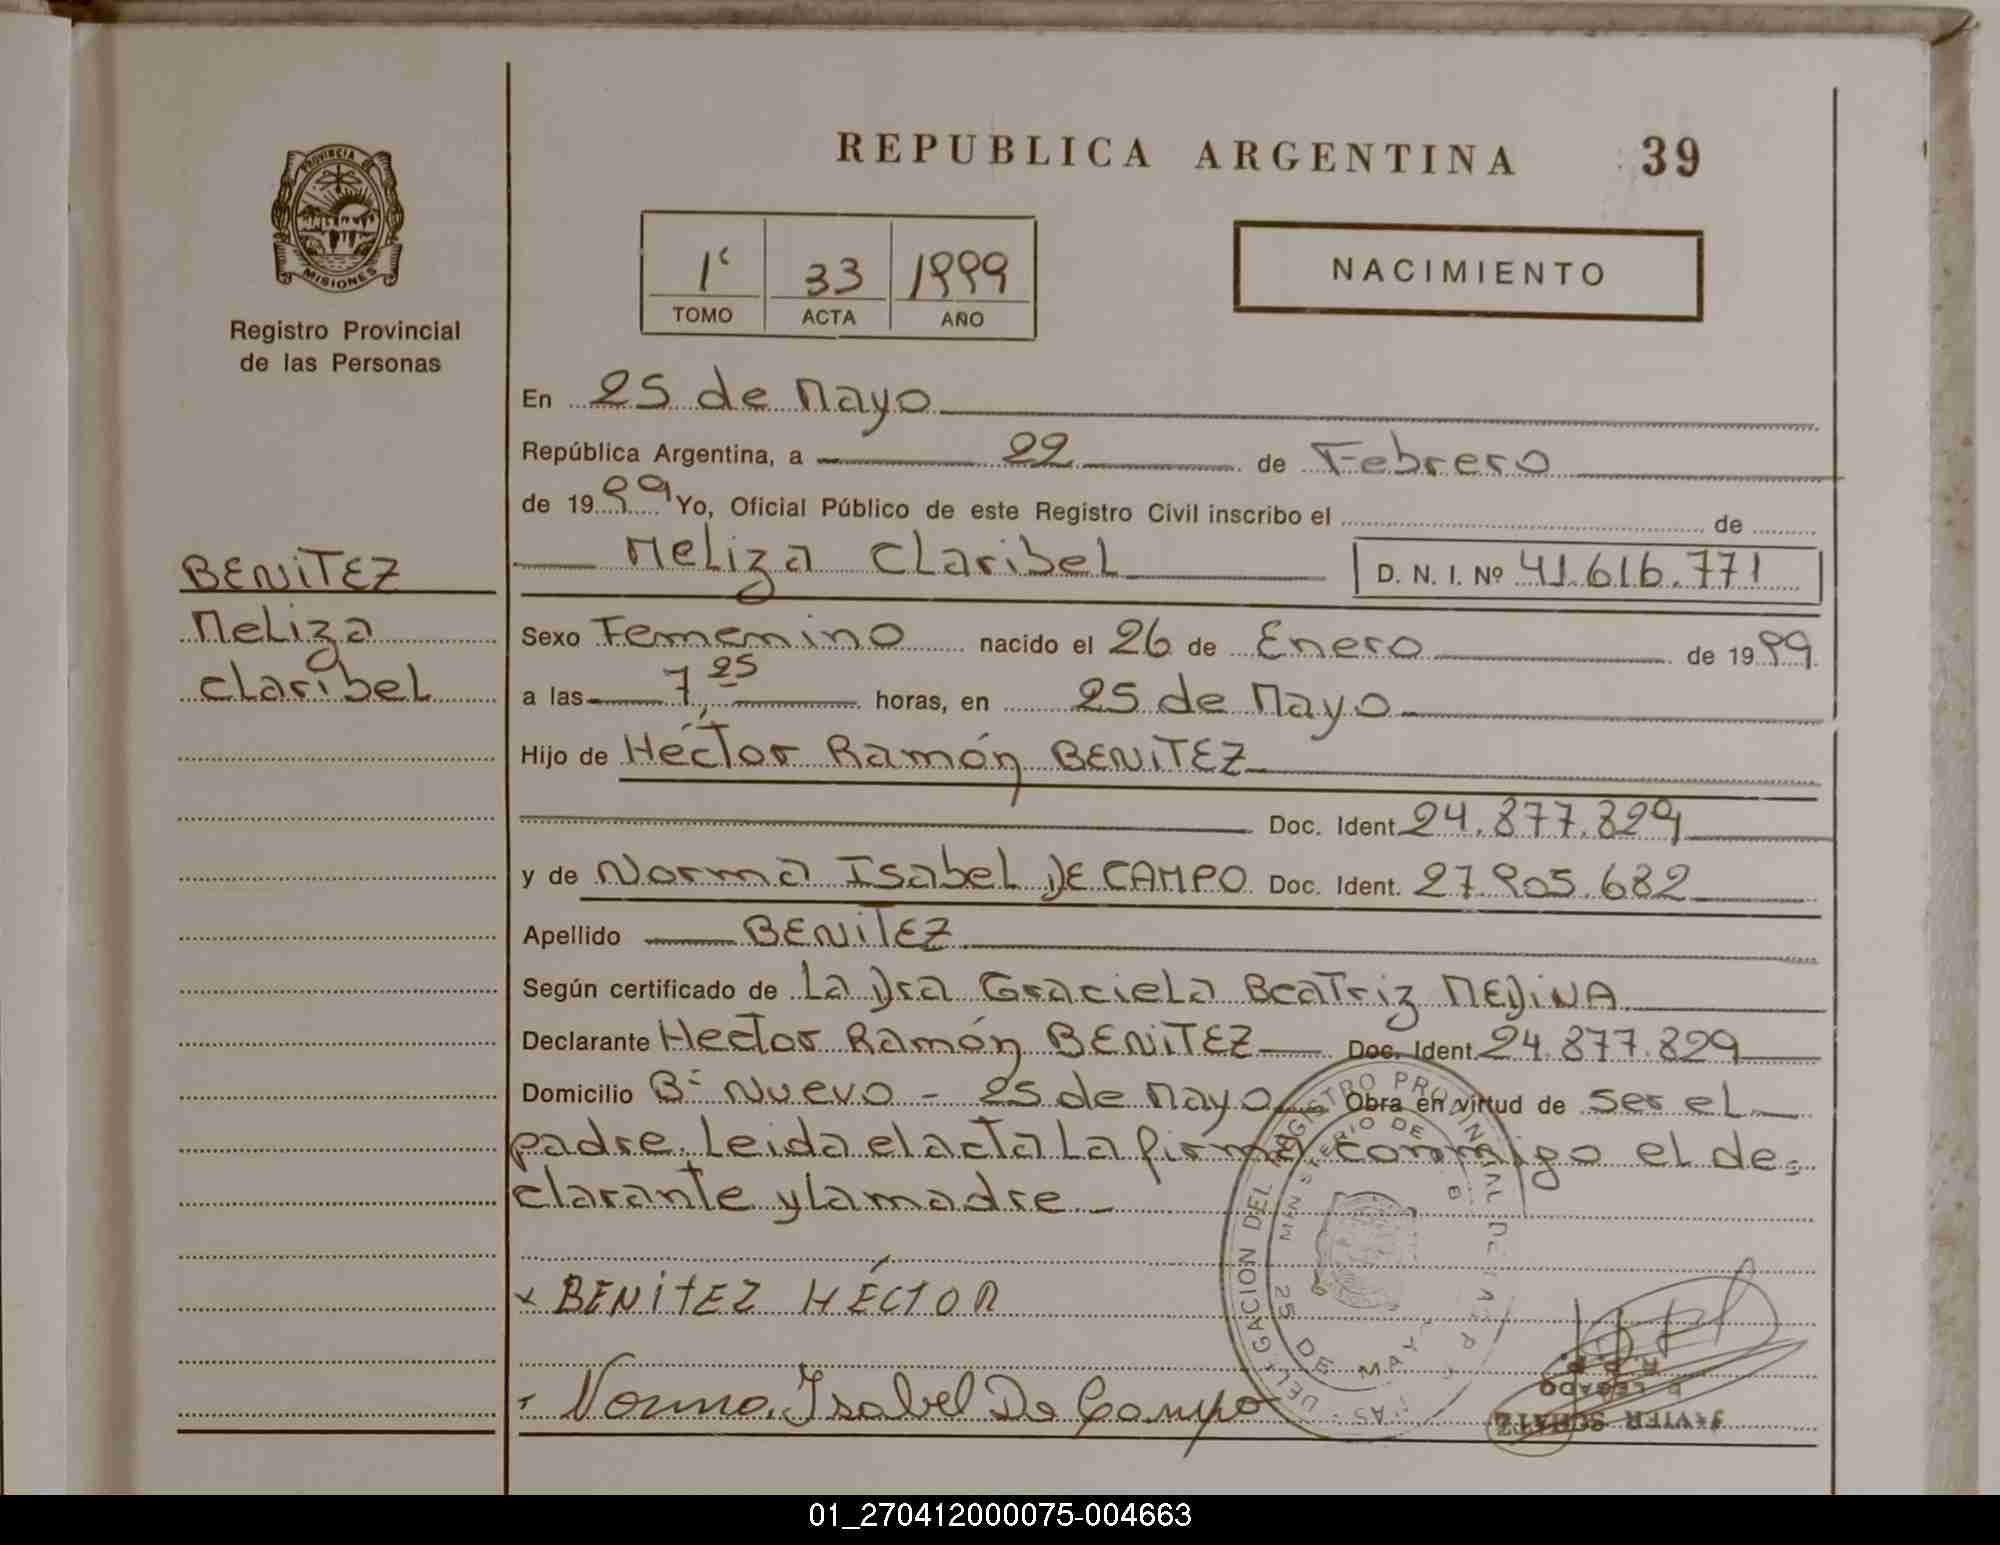 REPUBLICA ARGENTINA 39
PROVINCIA DE
MISIONES
Registro Provincial
de las Personas
1º 33 1999
TOMO ACTA AÑO
NACIMIENTO
BENITEZ
Meliza
Claribel
En 25 de Mayo
República Argentina, a 22 de Febrero
de 1999 Yo, Oficial Público de este Registro Civil inscribo el de
Meliza Claribel D. N. I. Nº 41.616.771
Sexo Femenino nacido el 26 de Enero de 1999
a las 7,25 horas, en 25 de Mayo
Hijo de Héctor Ramón BENITEZ
Doc. Ident 24.877.829
y de Norma Isabel DE CAMPO Doc. Ident. 27.905.682
Apellido BENITEZ
Según certificado de La Dra Graciela Beatriz MEDINA
Declarante Hector Ramón BENITEZ Doc. Ident. 24.877.829
Domicilio Bº Nuevo - 25 de Mayo Obra en virtud de ser el
padre. Leida el acta La firma conmigo el de=
clarante y La madre
x BENITEZ HÉCTOR
Norma Isabel De Campo
DELEGACION DEL REGISTRO PROVINCIAL DE LAS
MINISTERIO DE
25 DE MAYO
JAVIER SCHATZ
DELEGADO
R. P. P.
01_270412000075-004663